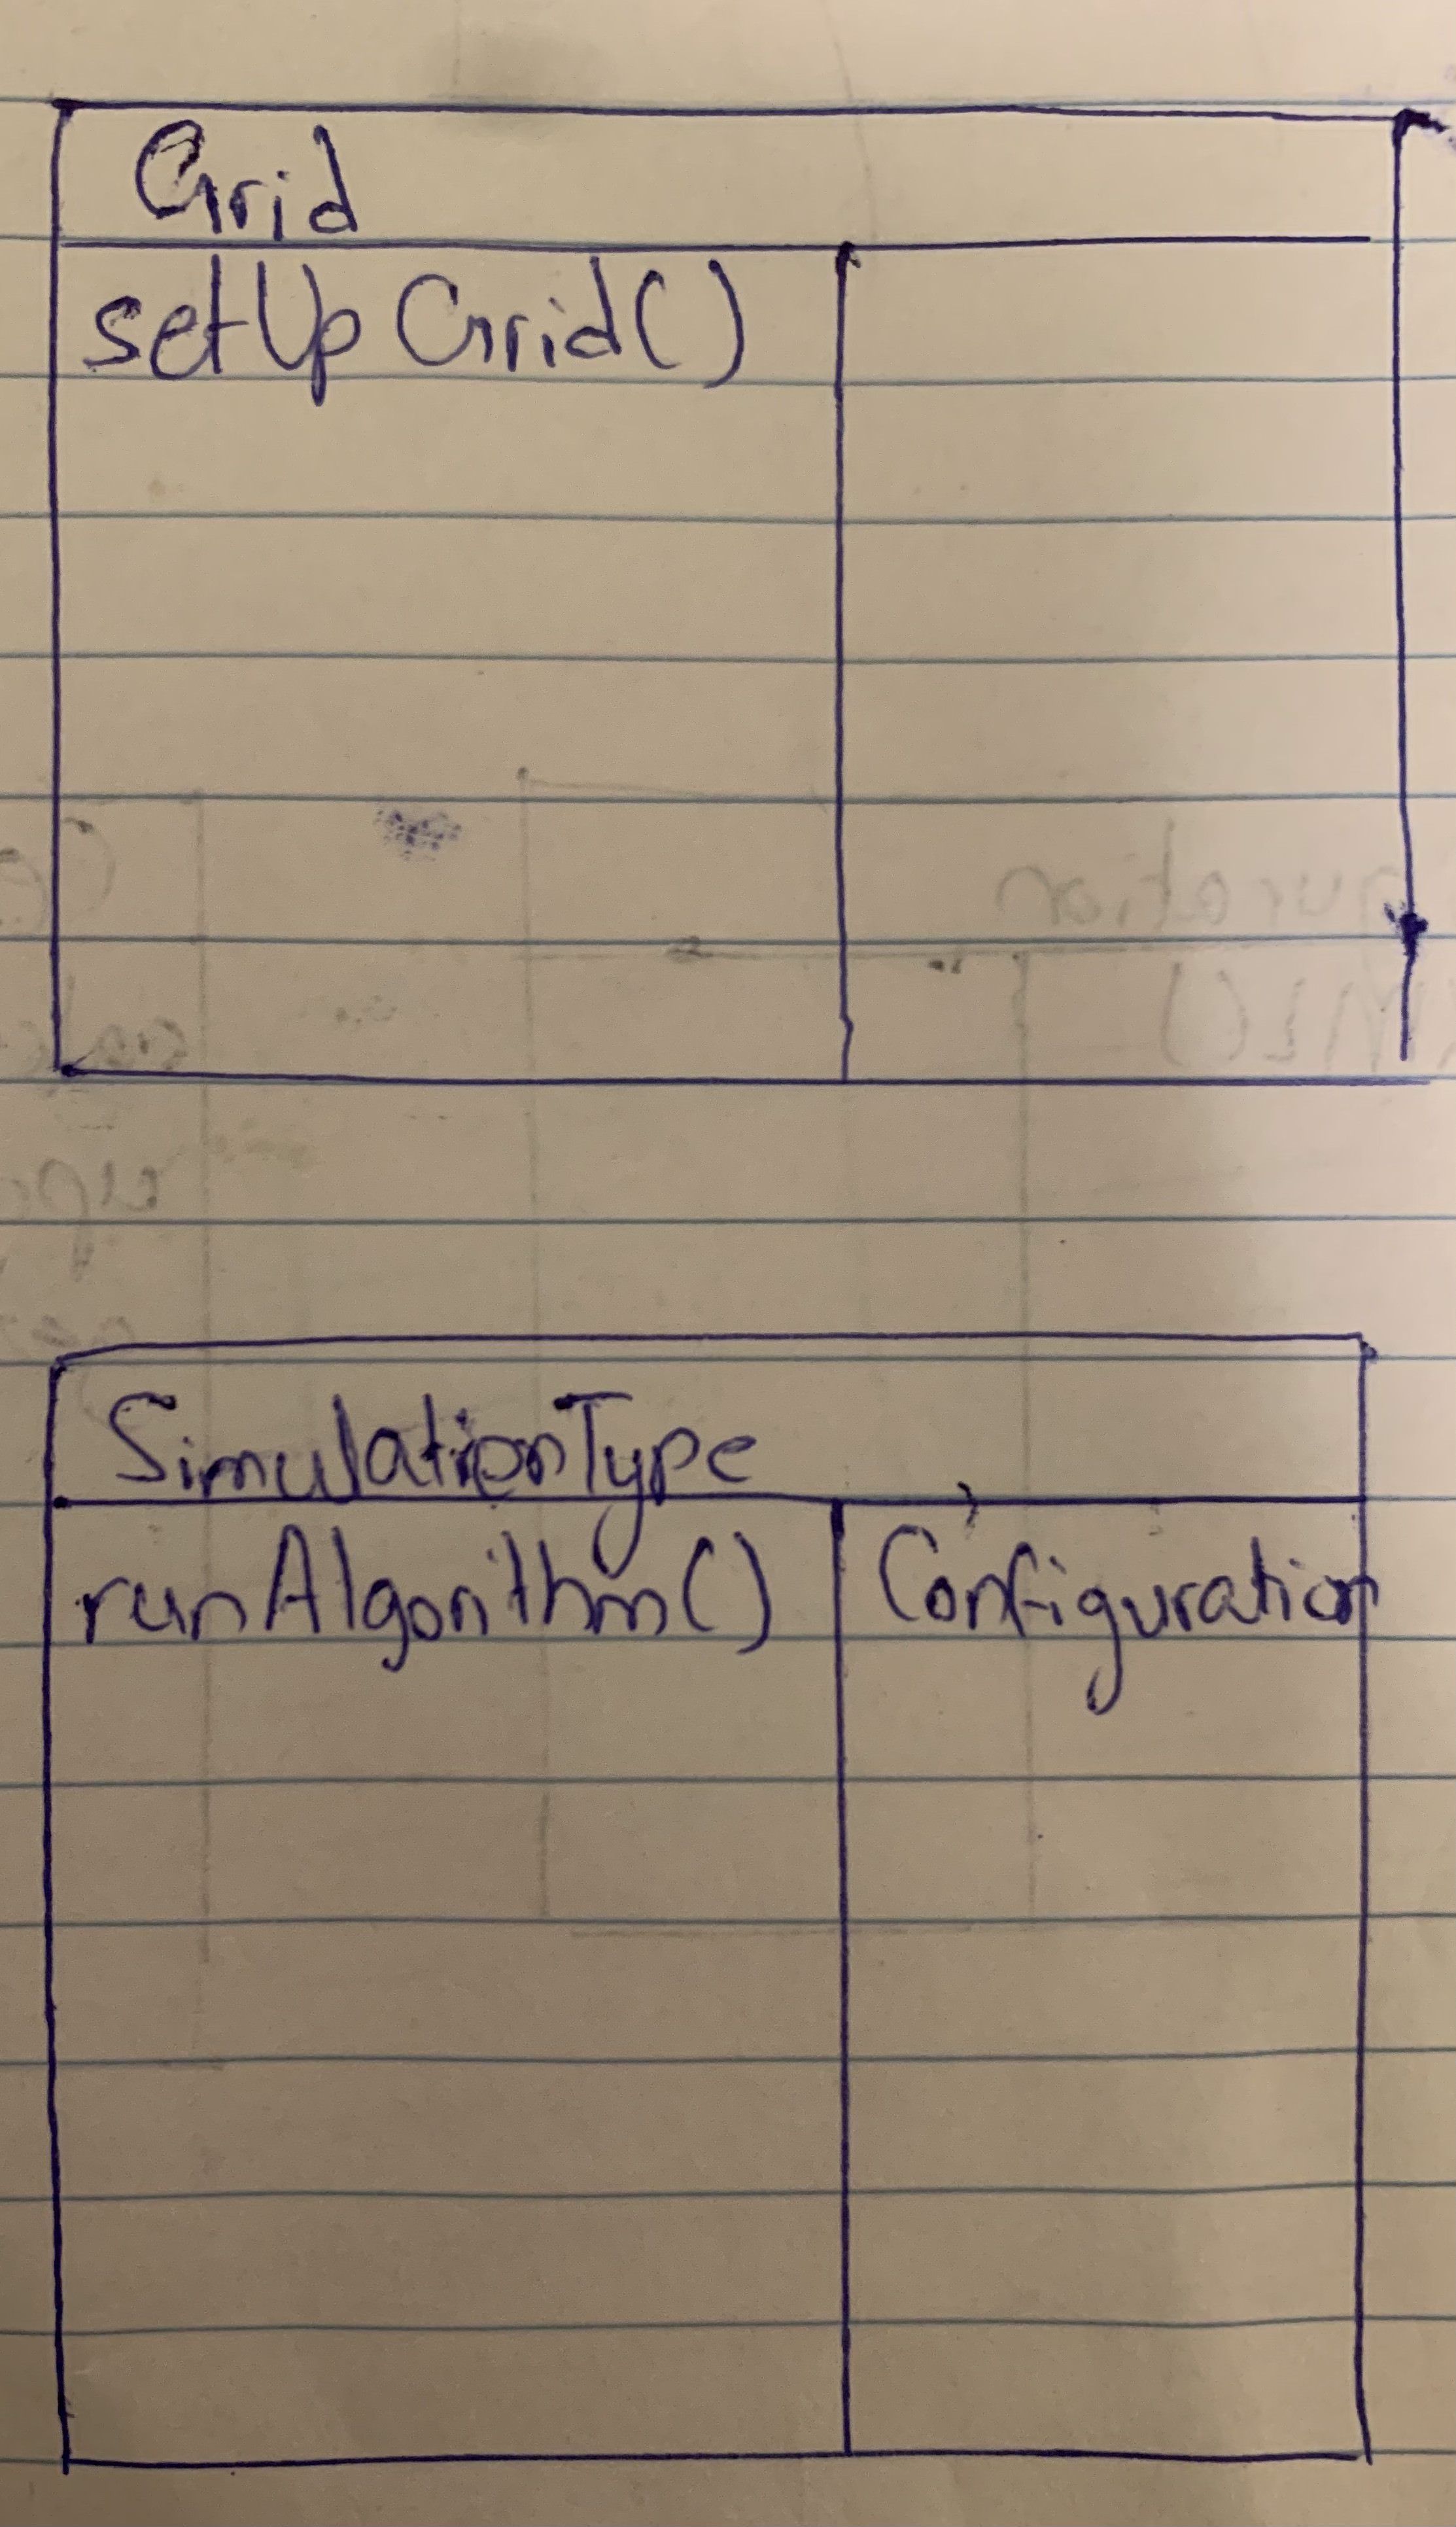 Grid
setUpGrid()
SimulationType
runAlgorithm() Configuration